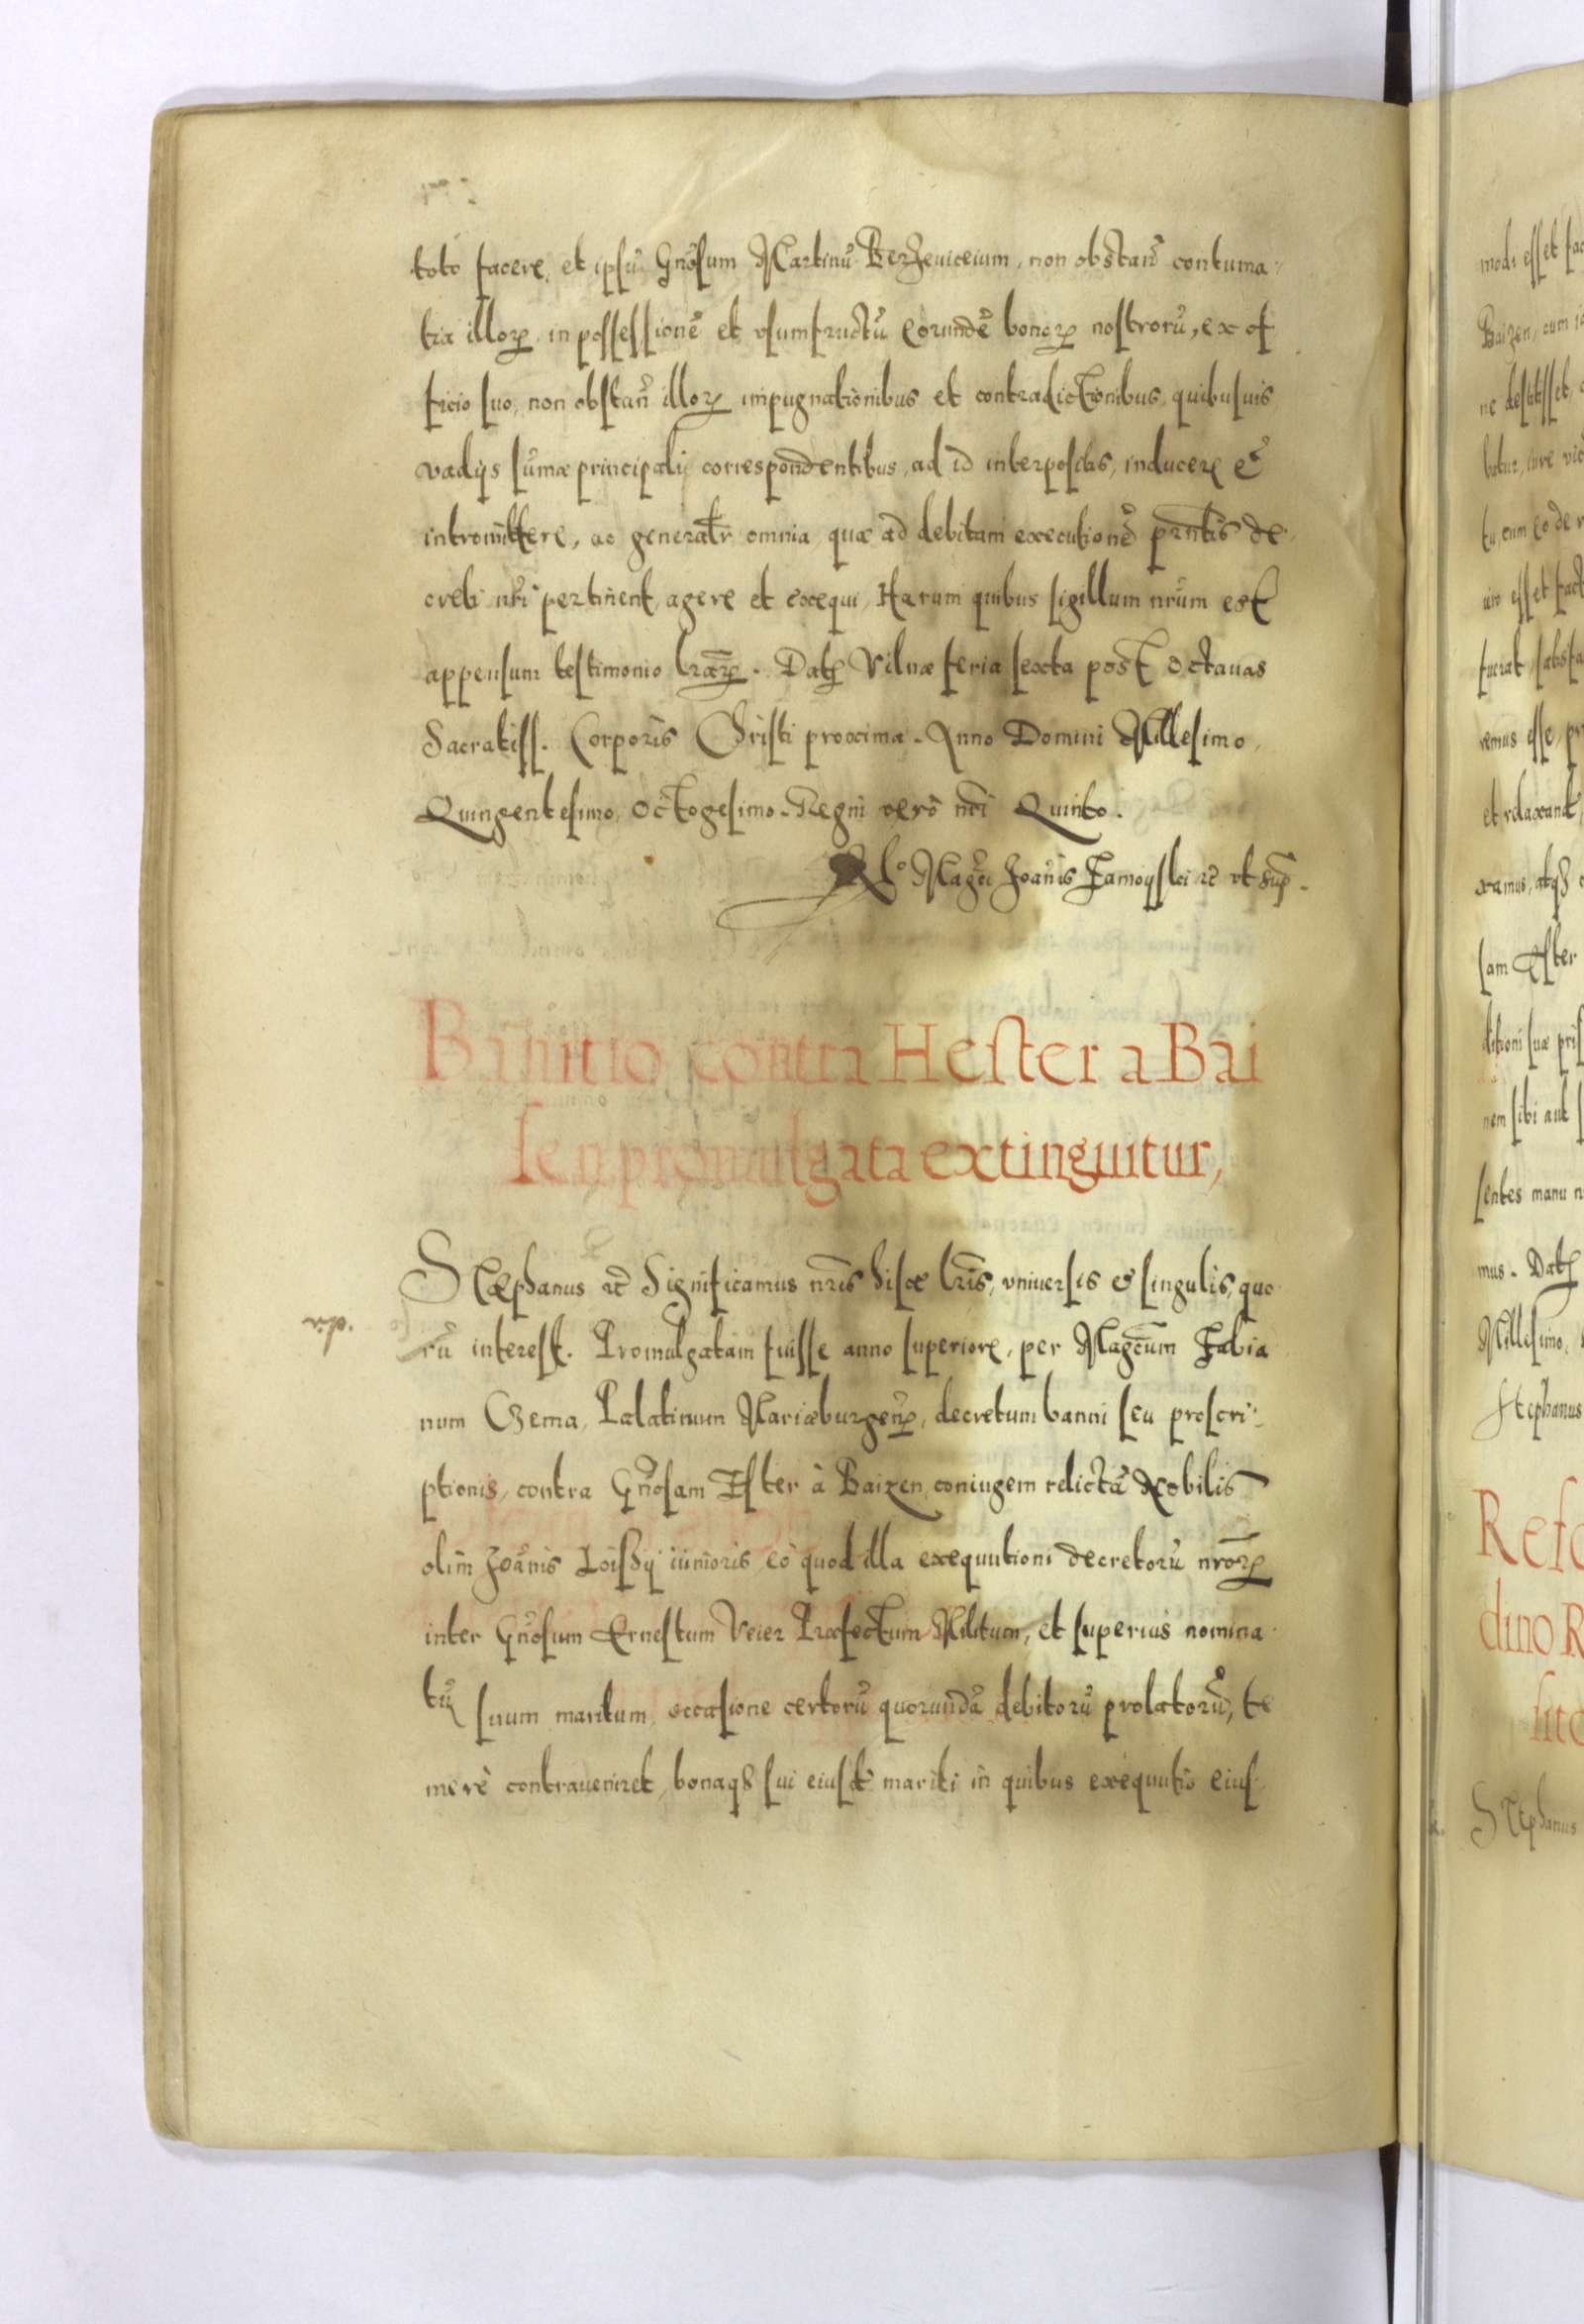 toto facere, et ipsũ Gnõsum Martinũ Berzeuiceium, non obstañ contuma
tia illorꝝ in possessionẽ et vsumfructũ eorundẽ bonorꝝ nostrorũ, ex of
ficio suo, non obstañ illorꝝ impugnationibus et contradictionibus, quibusuis
vadijs sũmæ principali correspondentibus, ad id interpositis, inducere &
intromittere, ac generalr̃ omnia quæ ad debitam executionẽ pr̃ntis de
creti nr̃i pertinent, agere et exequi, Harum quibus sigillum nr̃um est
appensum testimonio lr̃arꝝ. Datꝝ Vilnæ feria sexta post octauas
Sacratiss. Corporis Christi proxima. Anno Domini Millesimo
Quingentesimo, octogesimo. Regni verò nr̃i Quinto.
Rlo Magci Joañis Zamoyski &c̃ vt sup.
Bannitio contra Hester a Bai
sen promulgata extinguitur,
Stæphanus &c̃ Significamus nr̃is hisce lr̃is, vniuersis & singulis, quo
rũ interest. Promulgatam fuisse anno superiore, per Magc̃um Fabia
num Czema, Palatinum Mariæburgeñ, decretum banni seu proscri
ptionis, contra Gñosam Ester à Baizen coniugem relictã Nobilis
olim Joãnis Loisij iunioris, eò quod illa exequutioni decretorũ nr̃orꝝ
inter Gñosum Ernestum Veier Præfectum Militum, et superius nomina
tũ suum maritum, occasione certorũ quorundã debitorũ prolatorũ, te
merè contraueniret, bonaqꝫ sui eiusdẽ mariti in quibus exequutio eius